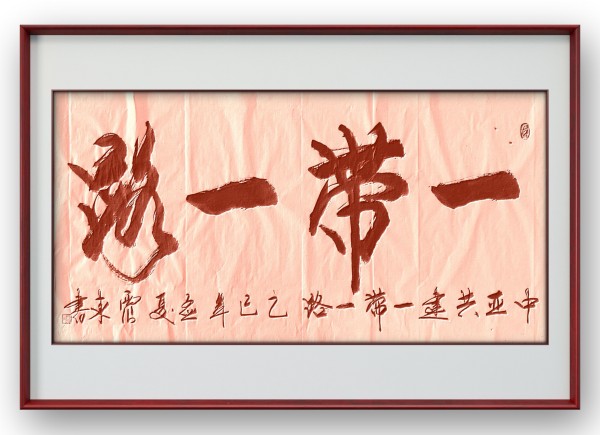 一带一路
中亚共建一带一路 乙巳年孟夏霄来书